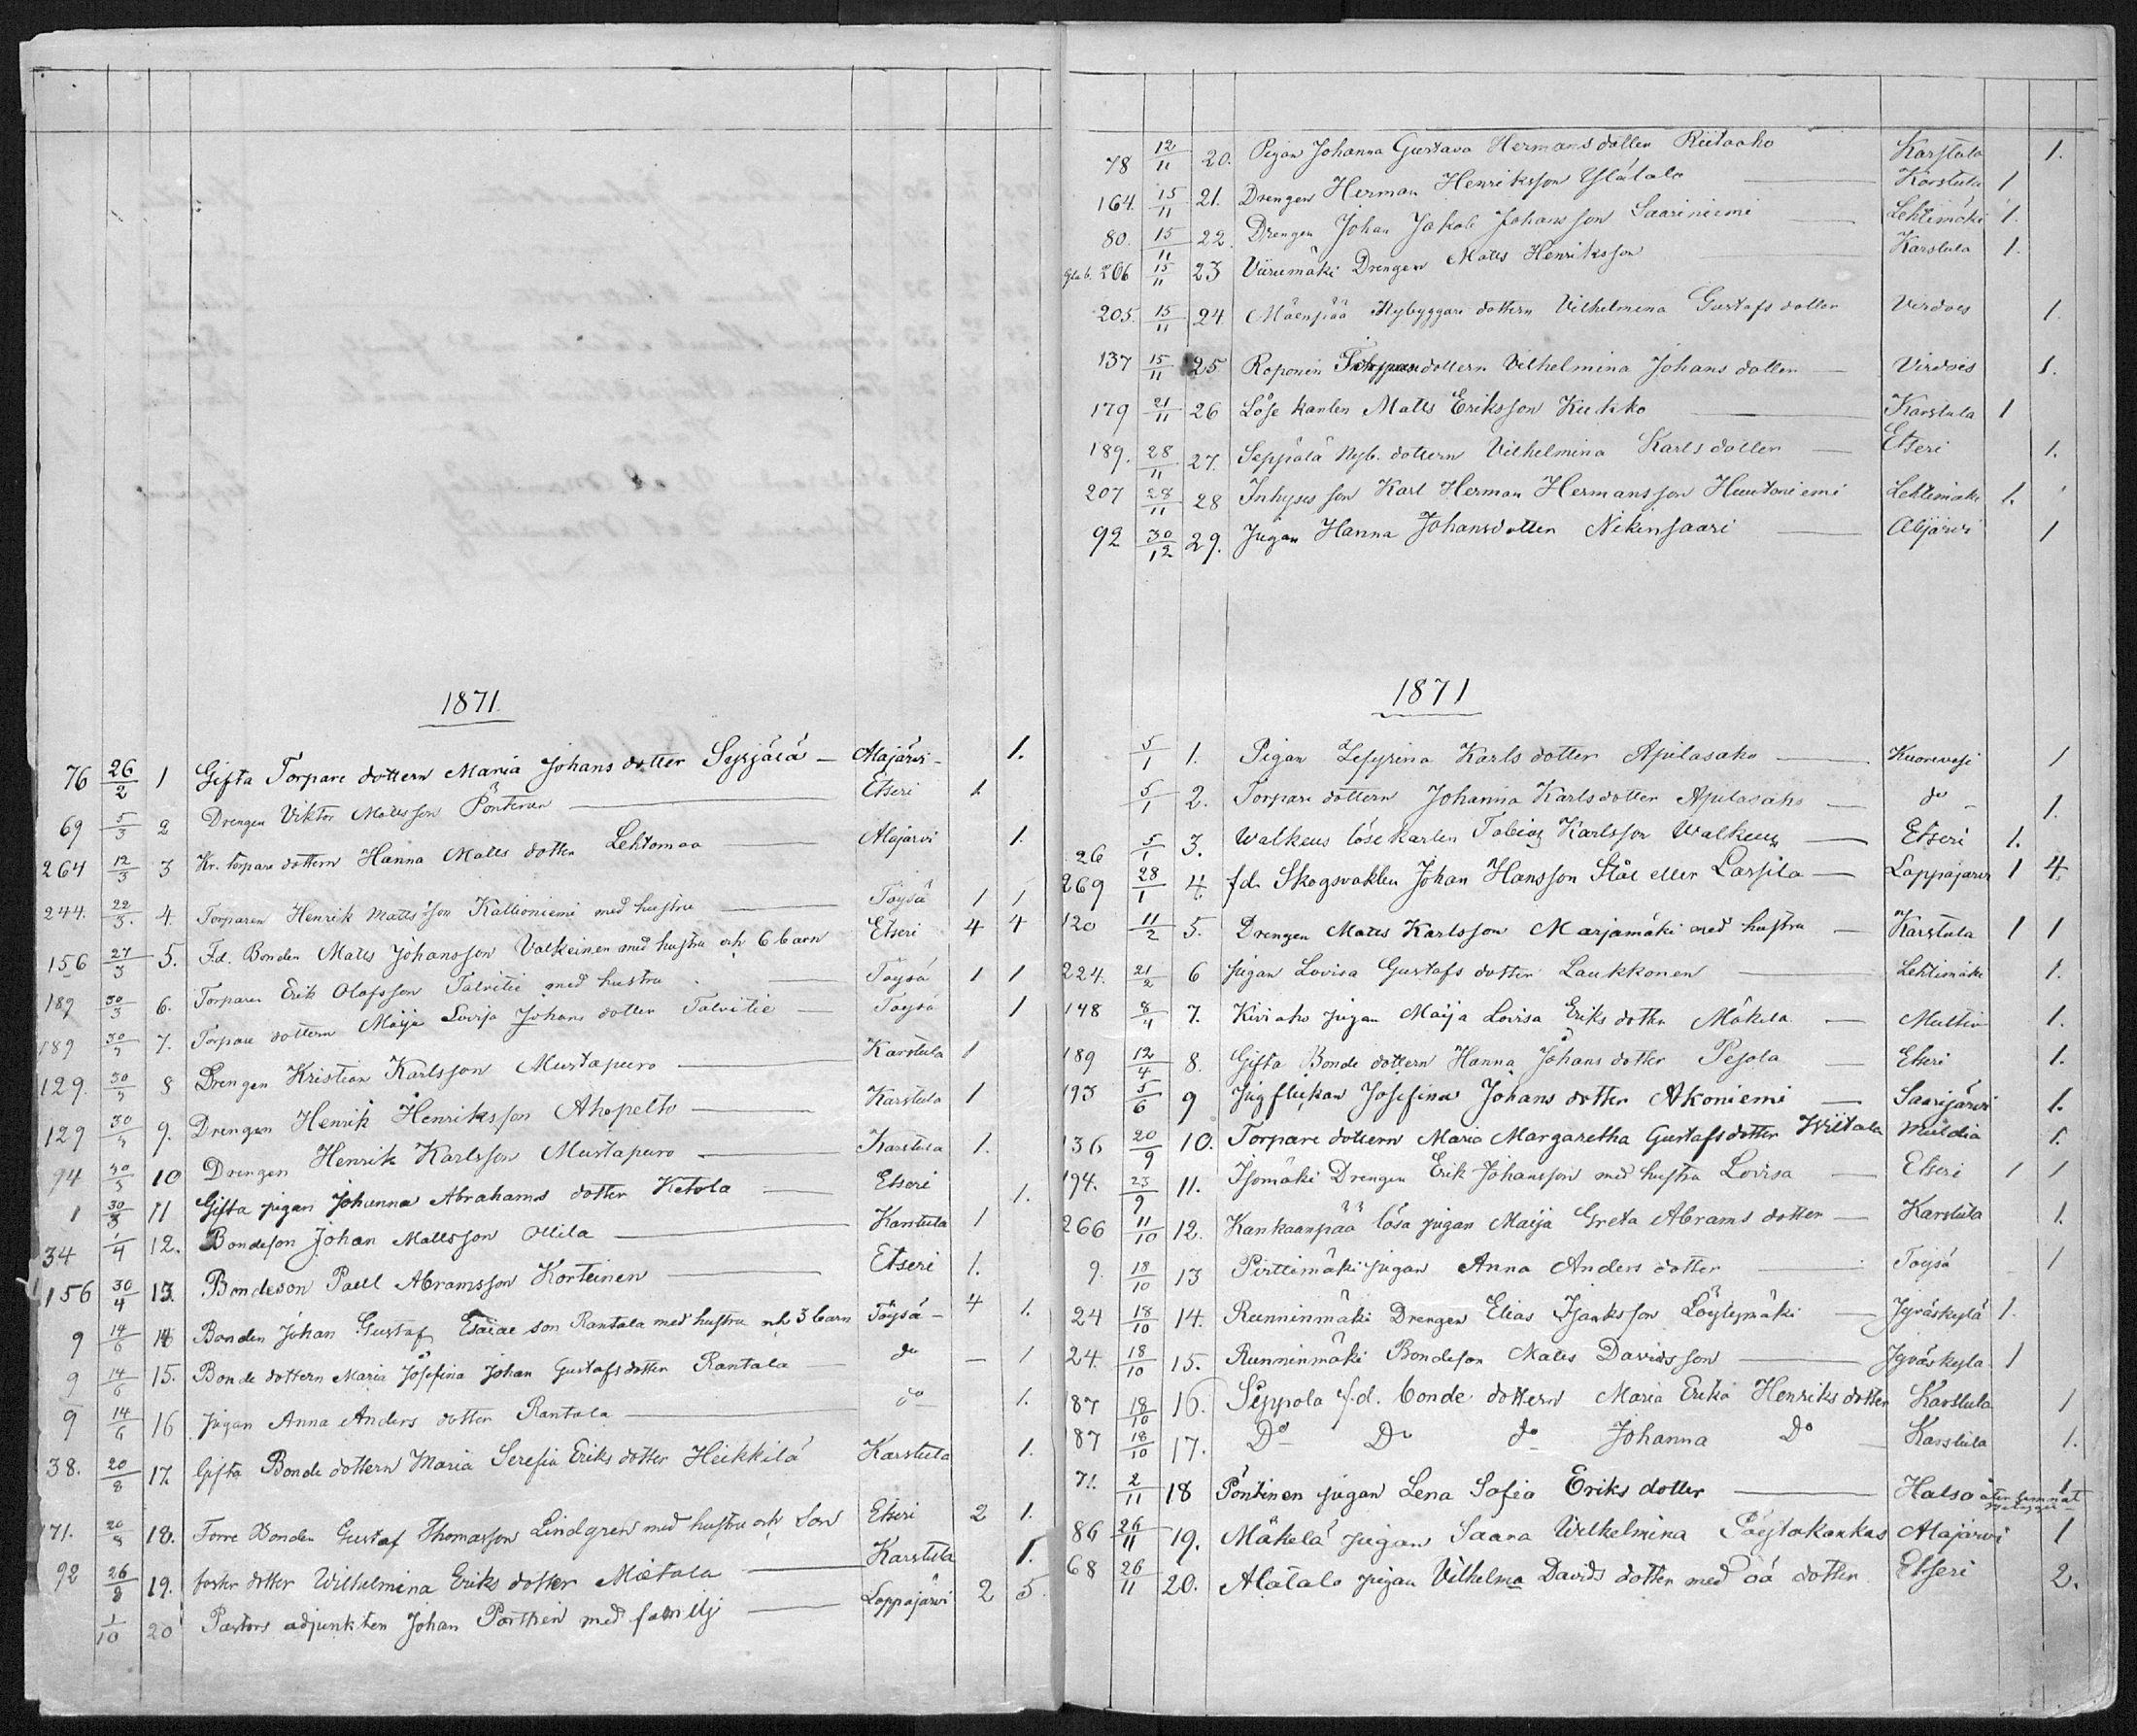 1871
76 26/2 1 Gifta Torpare dottern Maria Johans dotter Syrjälä — Alajärvi - 1.
69 5/3 2 Drengen Viktor Mattsson Pöntinen — Etseri 1
264 12/3 3 Kr. torpare dottern Hanna Matts dotter Lehtomaa — Alajärvi 1.
244. 22/3. 4. Torparen Henrik Mattsson Kallioniemi med hustru — Töysä 1 1
156 27/3 5. F.d. Bonden Matts Johansson Valkeinen med hustru och 6 barn Etseri 4 4
189 30/3 6. Torparen Erik Olofsson Talvitie med hustru — Töysä 1 1
189 30/3 7. Torpare dottern Maija Lovisa Johans dotter Talvitie — Töysä 1
129. 30/3 8 Drengen Kristian Karlsson Mustapuro — Karstula 1
129 30/3 9. Drengen Henrik Henriksson Ahopelto — Karstula 1
94 30/3 10 Drengen Henrik Karlsson Mustapuro — Karstula 1.
1 30/3 11 Gifta pigan Johanna Abrahams dotter Ketola — Etseri 1.
34 1/4 12. Bondeson Johan Mattsson Ollila — Karstula 1
156 30/4 13. Bondeson Paul Abramsson Korteinen — Etseri 1.
9 14/6 14 Bonden Johan Gustaf Esaiae son Rantala med hustru och 3 barn Töysä - 4 1.
9 14/6 15. Bonde dottern Maria Josefina Johan Gustafs dotter Rantala — do — 1
9 14/6 16 pigan Anna Anders dotter Rantala — do 1.
38. 20/8 17. Gifta Bonde dottern Maria Serefia Eriks dotter Heikkilä Karstula 1.
171. 20/8 18. Torre Bonden Gustaf Thomasson Lindgren med hustru och Son Etseri 2 1.
92 26/8 19. foster dotter Wilhelmina Eriks dotter Mietala — Karstula 1.
1/10 20 Pastors adjunkten Johan Porthen med familj — Lappajärvi 2 5.
78 12/11 20. Pigan Johanna Gustava Hermans dotter Riitaaho Karstula 1.
164. 15/11 21. Drengen Herman Henriksson Ylätalo — Karstula 1
80. 15/11 22. Drengen Johan Jakob Johansson Saariniemi — Lehtimäki 1.
206 15/11 23 Viirumäki Drengen Matts Henriksson — Karstula 1.
205. 15/11 24. Mäenpää Nybyggare dottern Vilhelmina Gustafs dotter Virdois 1.
137 15/11 25 Roponen dottern Vilhelmina Johans dotter — Virdois 1.
179 21/11 26 Löse karlen Matts Eriksson Kukko — Karstula 1
189. 28/11 27. Seppälä Nyb. dottern Vilhelmina Karls dotter — Etseri 1.
207 28/11 28 Inhyses son Karl Herman Hermansson Huutoniemi Lehtimäki 1.
92 30/12 29. pigan Hanna Johansdotter Nikensaari — Alajärvi 1
1871
5/1 1. Pigan Zefyrina Karls dotter Apilasaho — Kuorevesi 1
5/1 2. Torpare dottern Johanna Karlsdotter Apilasaho — do 1.
26 5/1 3. Walkeus löse karlen Tobias Karlsson Walkeus — Etseri 1.
269 28/1 4. f.d. Skogsvakten Johan Hansson Stål eller Larsila — Lappajärvi 1 4
120 11/2 5. Drengen Matts Karlsson Marjamäki med hustru — Karstula 1 1
224. 21/2 6 pigan Lovisa Gustafs dotter Laukkonen — Lehtimäki 1.
148 8/4 7. Kiviaho pigan Maija Lovisa Eriks dotter Mäkelä — Multia 1.
189 12/4 8. Gifta Bonde dottern Hanna Johans dotter Pesola — Etseri 1.
193 5/6 9 pigflickan Josefina Johans dotter Ahoniemi — Saarijärvi 1.
136 20/9 10. Torpare dottern Maria Margaretha Gustafsdotter Wiitala Muldia 1.
194. 23/9 11. Isomäki Drengen Erik Johansson med hustru Lovisa — Etseri 1 1
266 11/10 12. Kankaanpää lösa pigan Maija Greta Abrams dotter — Karstula 1.
9. 18/10 13 Pirttimäki pigan Anna Anders dotter — Töysä 1
24 18/10 14. Runninmäki Drengen Elias Isaksson Löytymäki — Jyväskylä 1.
24. 18/10 15. Runninmäki Bondeson Matts Davidsson — Jyväskylä 1
87 18/10 16. Seppola f.d. bonde dottern Maria Erika Henriks dotter Karstula 1
87 18/10 17. Do Do do Johanna Do — Karstula 1.
71. 2/11 18 Pöntinen pigan Lena Sofia Eriks dotter — Halso 1
86 26/11 19. Mäkelä pigan Saara Wilhelmina Pöytäkankas Alajärvi 1
68 26/11 20. Alatalo pigan Vilhelma Davids dotter med oä dotter Etseri 2.